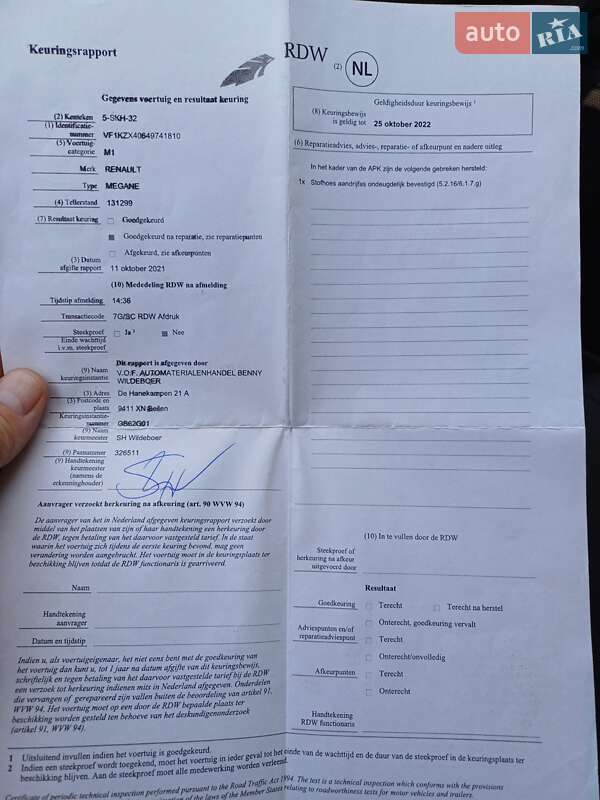 auto RIA .com
Keuringsrapport
RDW (2) NL
Gegevens voertuig en resultaat keuring
(2) Kenteken 5-SKH-32
(1) Identificatie-
nummer VF1KZX40649741810
(5) Voertuig-
categorie M1
Merk RENAULT
Type MEGANE
(4) Tellerstand 131299
(7) Resultaat keuring Goedgekeurd
Goedgekeurd na reparatie, zie reparatiepunten
Afgekeurd, zie afkeurpunten
(3) Datum
afgifte rapport 11 oktober 2021
(10) Mededeling RDW na afmelding
Tijdstip afmelding 14:36
Transactiecode 7G/SC RDW Afdruk
Steekproef Ja ² Nee
Einde wachttijd
i.v.m. steekproef
Dit rapport is afgegeven door
(9) Naam
keuringsinstantie V.O.F. AUTOMATERIALENHANDEL BENNY
WILDEBOER
(3) Adres De Hanekampen 21 A
(3) Postcode en
plaats 9411 XN Beilen
Keuringsinstantie-
nummer
(9) Naam
keurmeester SH Wildeboer
(9) Pasnummer 326511
(9) Handtekening
keurmeester
(namens de
erkenninghouder)
Aanvrager verzoekt herkeuring na afkeuring (art. 90 WVW 94)
De aanvrager van het in Nederland afgegeven keuringsrapport verzoekt door
middel van het plaatsen van zijn of haar handtekening een herkeuring door
de RDW, tegen betaling van het daarvoor vastgesteld tarief. In de staat
waarin het voertuig zich tijdens de eerste keuring bevond, mag geen
verandering worden aangebracht. Het voertuig moet in de keuringsplaats ter
beschikking blijven totdat de RDW functionaris is gearriveerd.
Naam
Handtekening
aanvrager
Datum en tijdstip
Indien u, als voertuigeigenaar, het niet eens bent met de goedkeuring van
het voertuig dan kunt u, tot 1 jaar na datum afgifte van dit keuringsbewijs,
schriftelijk en tegen betaling van het daarvoor vastgestelde tarief bij de RDW
een verzoek tot herkeuring indienen mits in Nederland afgegeven. Onderdelen
die vervangen of gerepareerd zijn vallen buiten de beoordeling van artikel 91,
WVW 94. Het voertuig moet op een door de RDW bepaalde plaats ter
beschikking worden gesteld ten behoeve van het deskundigenonderzoek
(artikel 91, WVW 94).
Geldigheidsduur keuringsbewijs ¹
(8) Keuringsbewijs
is geldig tot 25 oktober 2022
(6) Reparatieadvies, advies-, reparatie- of afkeurpunt en nadere uitleg
In het kader van de APK zijn de volgende gebreken hersteld:
1x Stofhoes aandrijfas ondeugdelijk bevestigd (5.2.16/6.1.7.g)
(10) In te vullen door de RDW
Steekproef of
herkeuring na afkeur
uitgevoerd door
Resultaat
Goedkeuring Terecht Terecht na herstel
Onterecht, goedkeuring vervalt
Adviespunten en/of
reparatieadviespunt Terecht
Onterecht/onvolledig
Afkeurpunten Terecht
Onterecht
Handtekening
RDW functionaris
1 Uitsluitend invullen indien het voertuig is goedgekeurd.
2 Indien een steekproef wordt toegekend, moet het voertuig in ieder geval tot het einde van de wachttijd en de duur van de steekproef in de keuringsplaats ter
beschikking blijven. Aan de steekproef moet alle medewerking worden verleend.
Certificate of periodic technical inspection performed pursuant to the Road Traffic Act 1994. The test is a technical inspection which conforms with the provisions
of the laws of the Member States relating to roadworthiness tests for motor vehicles and trailers.